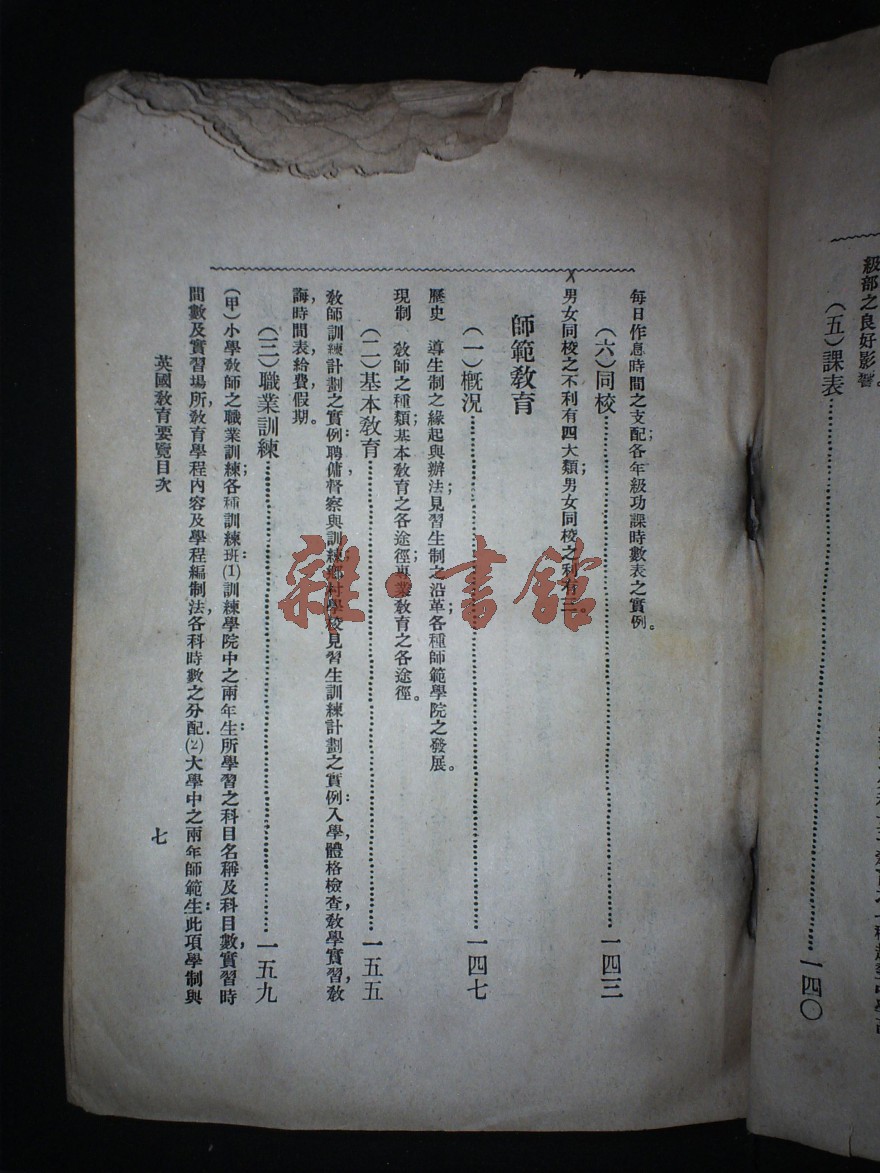 級部之良好影響。
(五)課表……一四〇
每日作息時間之支配;各年級功課時數表之實例。
(六)同校……一四三
男女同校之不利有四大類;男女同校之利有三。
師範教育
(一)概況……一四七
歷史 導生制之緣起與辦法;見習生制之沿革;各種師範學院之發展。
現制 教師之種類;基本教育之各途徑;專業教育之各途徑。
(二)基本教育……一五五
教師訓練計劃之實例:聘傭,督察與訓練;鄉村學校見習生訓練計劃之實例:入學,體格檢查,教學實習,教
誨,時間表,給費,假期。
(三)職業訓練……一五九
(甲)小學教師之職業訓練;各種訓練班:(1)訓練學院中之兩年生:所學習之科目名稱及科目數,實習時
間數及實習場所,教育學程內容及學程編制法,各科時數之分配.(2)大學中之兩年師範生:此項學制與
英國教育要覽目次
七
雜·書館